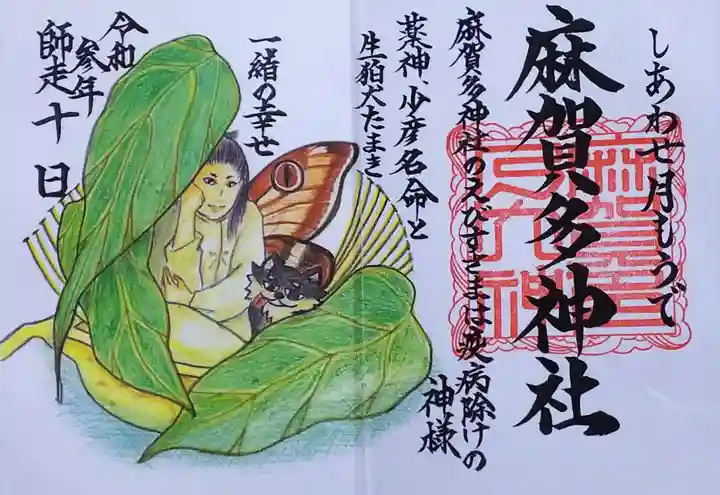 しあわせ月もうで
麻賀多神社
麻賀多神社のえびすさまは疾病除けの
神様
薬神、少彦名命と
生狛犬たまき
一緒の幸せ
令和
参年
師走十日